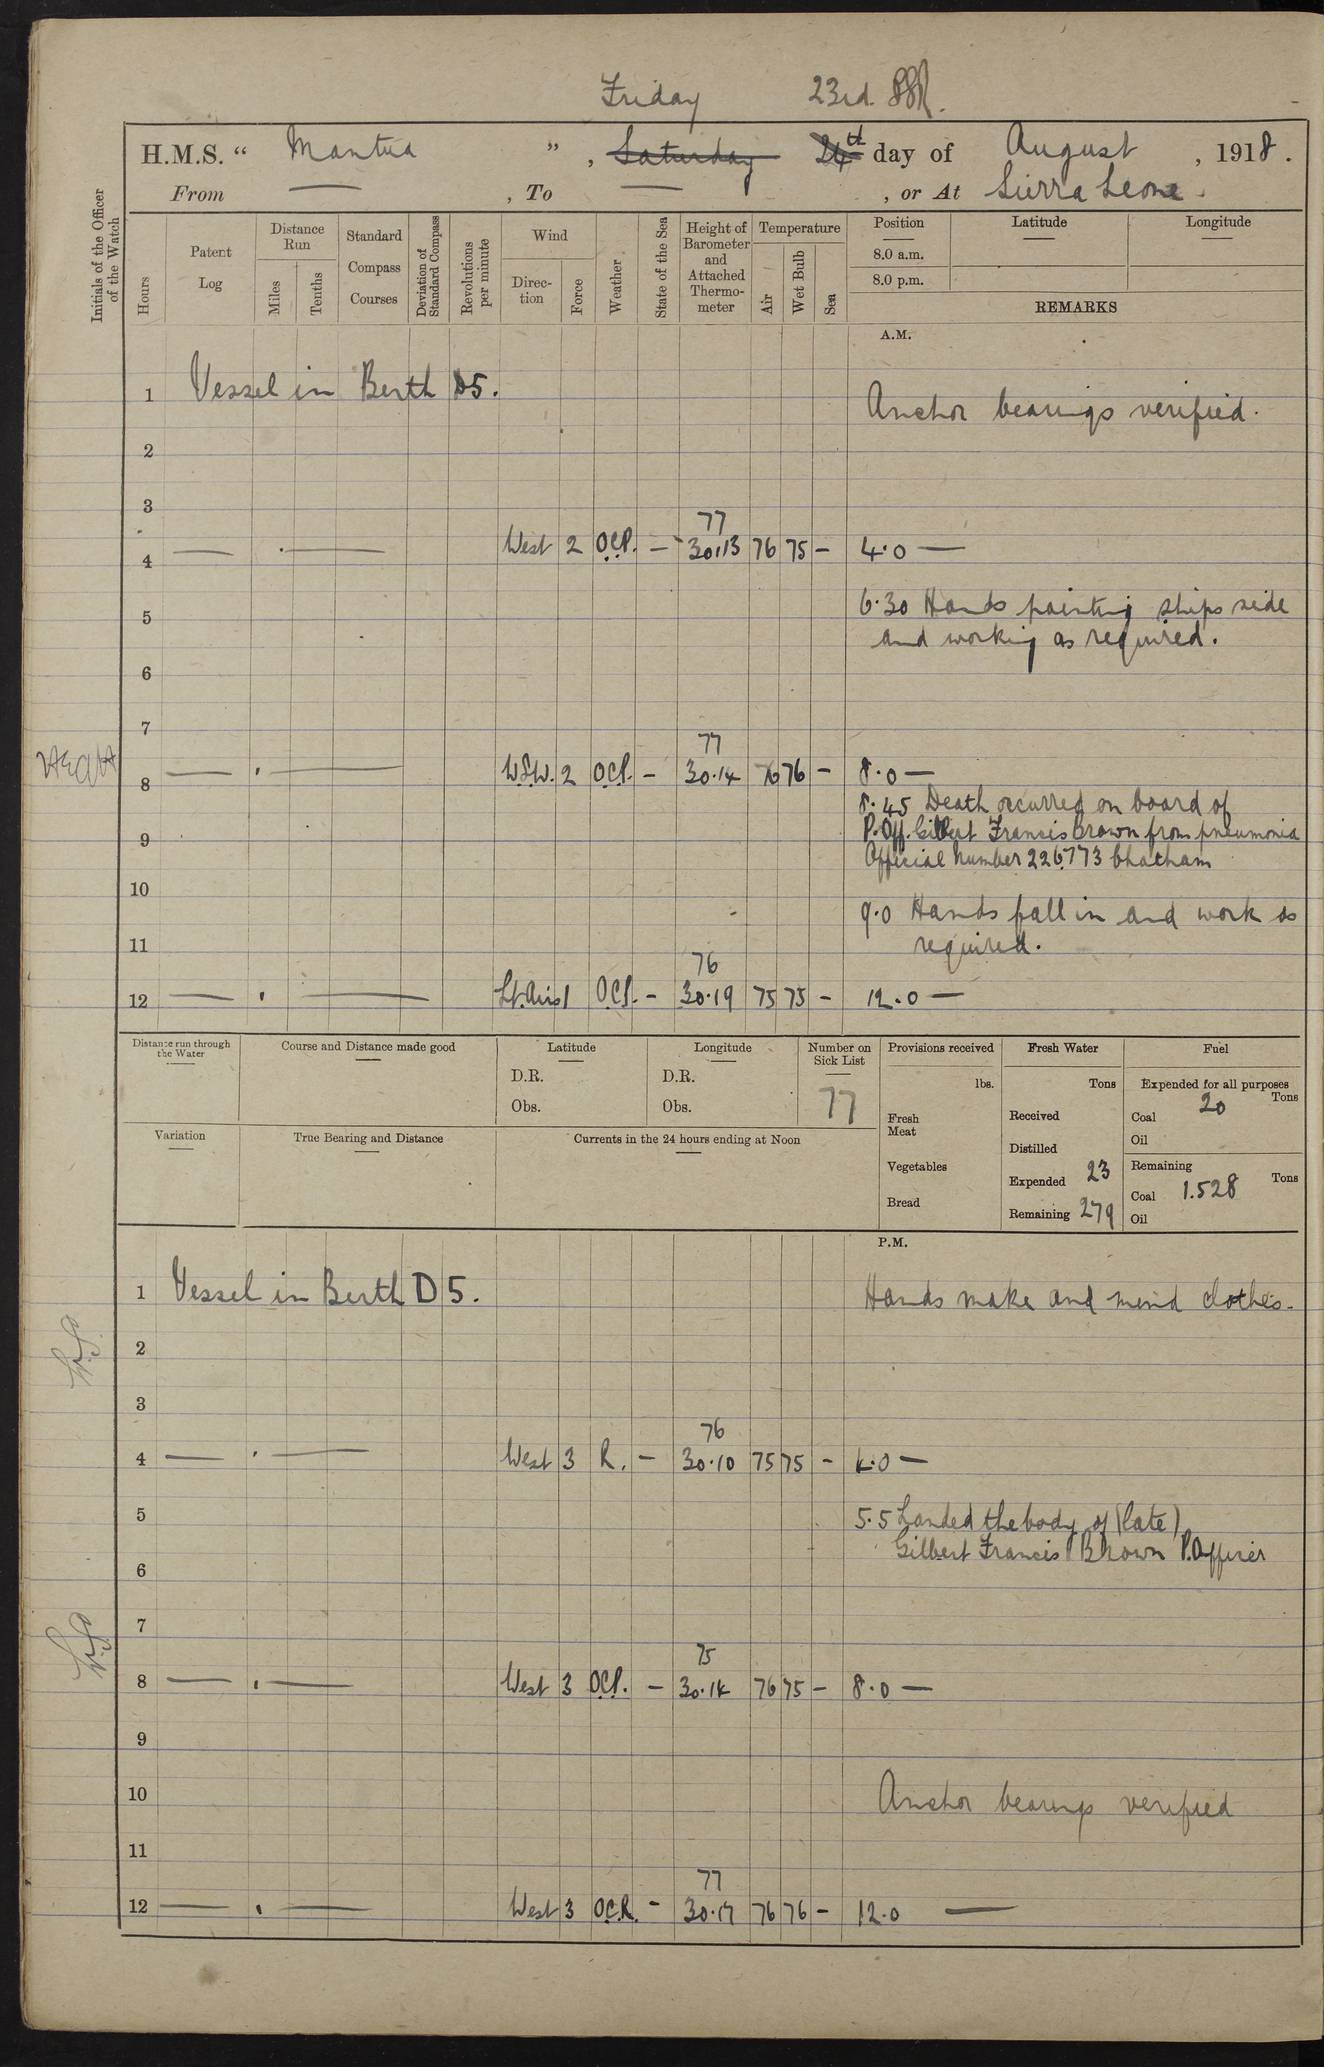 Friday 23rd.
H.M.S. “ Mantua ” , Saturday 24th day of August , 1918 .
From — , To — , or At Sierra Leone.
Initials of the Officer of the Watch
Hours
Patent Log
Distance Run
Miles
Tenths
Standard Compass Courses
Deviation of Standard Compass
Revolutions per minute
Wind
Direction
Force
Weather
State of the Sea
Height of Barometer and Attached Thermometer
Temperature
Air
Wet Bulb
Sea
Position
Latitude
Longitude
8.0 a.m.
8.0 p.m.
REMARKS
A.M.
1 Vessel in Berth D5. Anchor bearings verified.
2
3
77
4 — . — West 2 O.C.P. — 30.13 76 75 — 4.0 —
6.30 Hands painting ships side
5
and working as required.
6
7
77
8 — . — W.S.W. 2 O.C.P. — 30.14 76 76 — 8.0 —
8.45 Death occurred on board of
P.Off. Gilbert Francis Brown from pneumonia
9
Official Number 226773 Chatham
10
9.0 Hands fall in and work as
11 required.
76
12 — . — Lt. Airs 1 O.C.P. — 30.19 75 75 — 12.0 —
Distance run through the Water
Course and Distance made good
Latitude
D.R.
Obs.
Longitude
D.R.
Obs.
Number on Sick List
77
Provisions received
lbs.
Fresh Meat
Vegetables
Bread
Fresh Water
Tons
Received
Distilled
Expended 23
Remaining 279
Fuel
Expended for all purposes
Tons
Coal 20
Oil
Remaining
Tons
Coal 1.528
Oil
Variation
True Bearing and Distance
Currents in the 24 hours ending at Noon
P.M.
1 Vessel in Berth D5. Hands make and mend clothes.
2
3
76
4 — . — West 3 R. — 30.10 75 75 — 4.0 —
5 5.5 Landed the body of (late)
Gilbert Francis Brown P.Officer
6
7
75
8 — . — West 3 O.C.P. — 30.14 76 75 — 8.0 —
9
10 Anchor bearings verified
11
77
12 — . — West 3 O.C.R. — 30.17 76 76 — 12.0 —